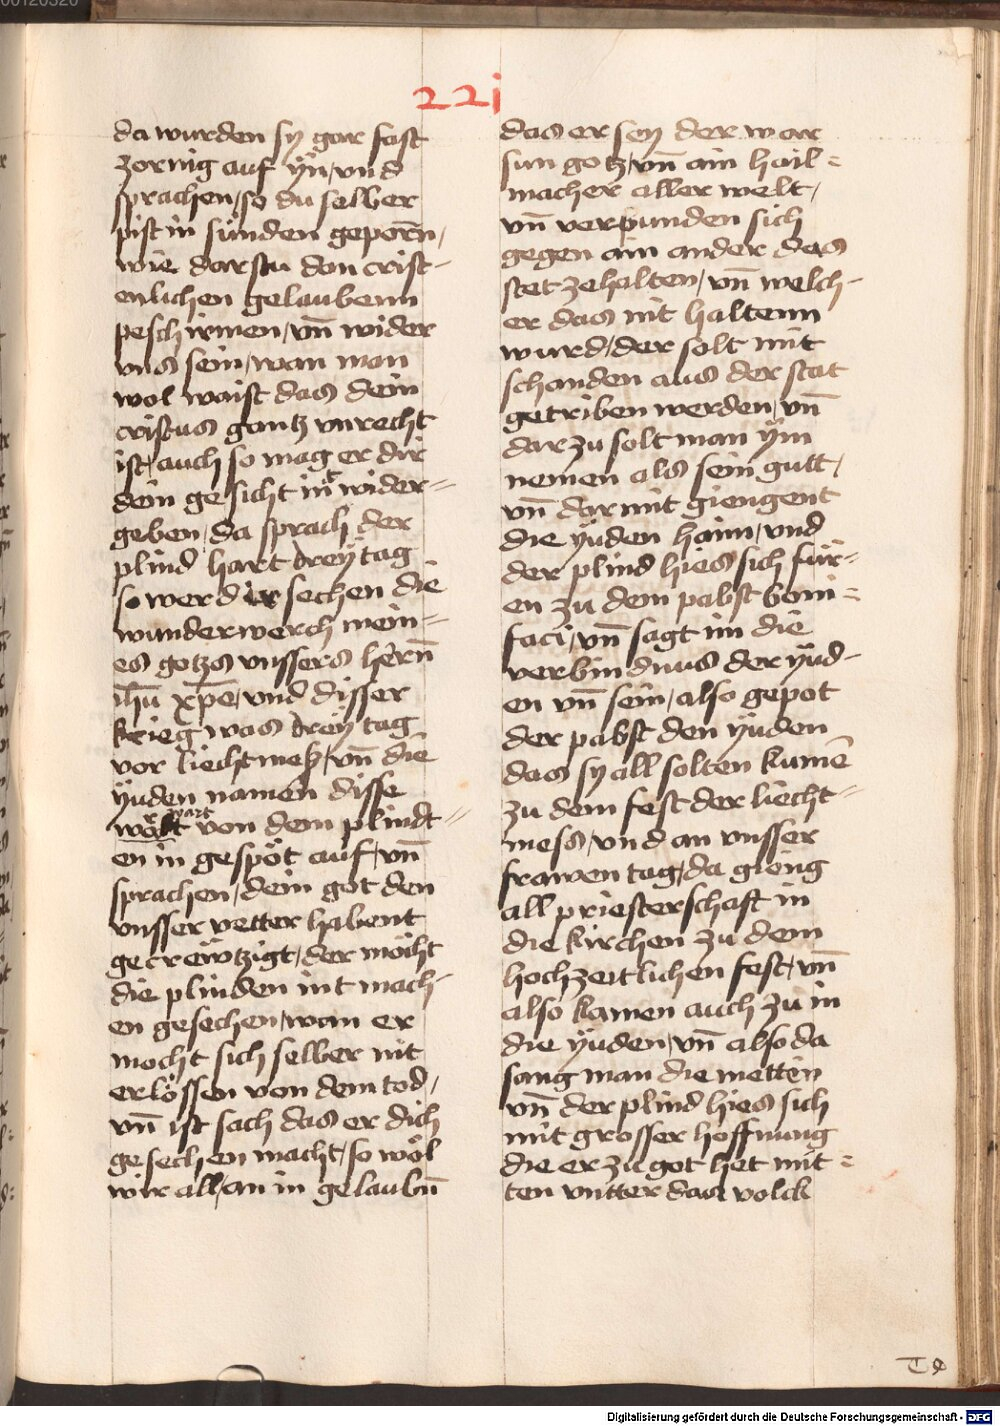 00126326
22j
da wurden sy gar fast
zornig auf ÿn/vnd
sprachen/so du selber
pist in sünden geporn̄/
wie darstu den crist-
enlichen gelaubenn
peschirmen/vn̄ wider
vns sein/wan man
wol waist das dein
cristus gantz vnrecht
ist/auch so mag er dir
dein gesicht nit wider=
geben/da sprach der
plind hart dreÿ tag
so werd ir sechen die
wunderwerch mein=
es gotzs vnssers hern̄
ihū xp̄e/vnd disser
krieg was dreÿ tag
vor liechtmeß/vn̄ die
ÿuden namen disse
wort von dem plindt=
en in gespöt auf/vn̄
sprachen/dein got den
vnsser vetter habent
gecreẅtzigt/der möcht
die plinden nit mach-
en gesechen/wan er
mocht sich selber nit
erlössen von dem tod/
vn̄ ist sach das er dich
gesechen macht/so wöl
wir all/an in gelaubn̄
das er seÿ der war
sun gotz/vn̄ ain hail=
macher aller welt/
vn̄ verpunden sich
gegen ain ander das
stet zehalten/vn̄ welch-
er das nit haltenn
wurd/der solt mit
schanden aus der stat
getriben werden/vn̄
dar zu solt man ÿm
nemen als sein gutt/
vn̄ dar mit giengent
die ÿuden haim/vnd
der plind hies sich für=
en zu dem pabst boni=
faci/vn̄ sagt im die
verbindnus der ÿud-
en vn̄ sein/also gepot
der pabst den ÿuden
das sy all solten kumē
zu dem fest der liecht=
mess/vnd an vnsser
frawen tag/da gieng
all priesterschaft in
die kirchen zu dem
hochzeitlichen fest/vn̄
also kamen auch zu in
die ÿuden/vn̄ also da
sang man die mettin
vn̄ der plind hies sich
mit grosser hoffnung
die er zu got het mit=
ten vntter das volck
Digitalisierung gefördert durch die Deutsche Forschungsgemeinschaft - DFG